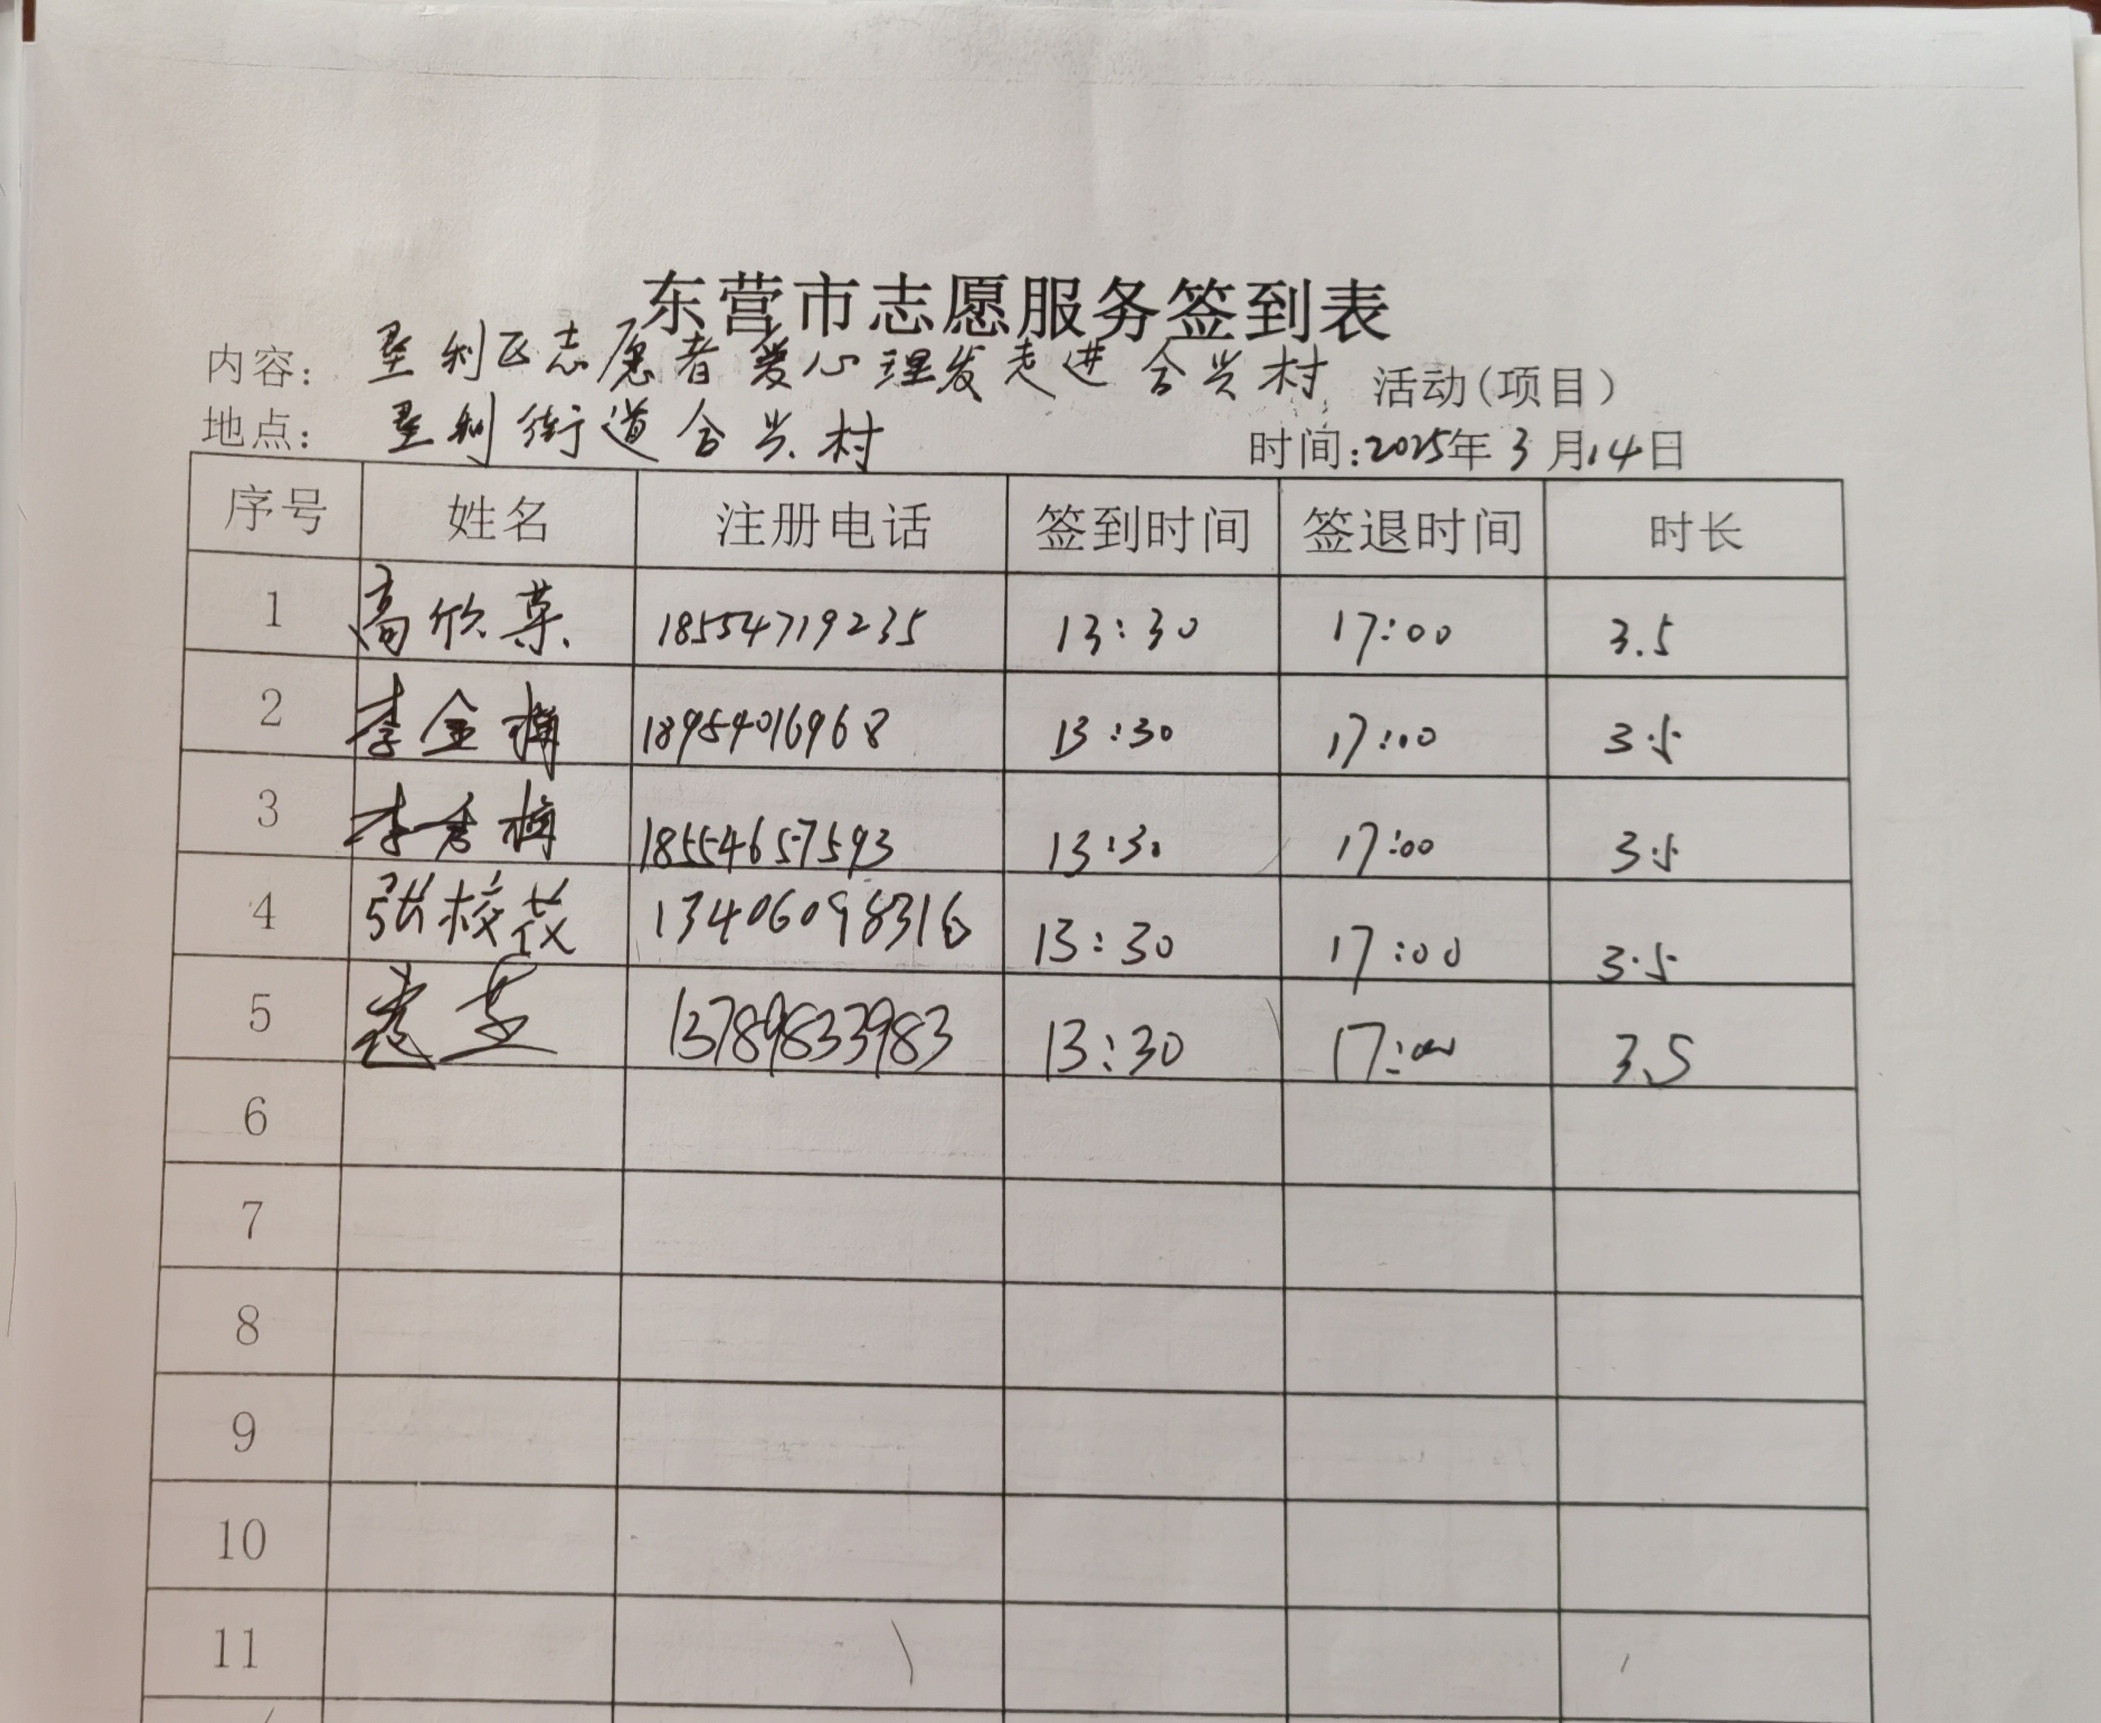 东营市志愿服务签到表
内容： 垦利区志愿者爱心理发走进合兴村 活动(项目)
地点： 垦利街道合兴村 时间:2025年3月14日
序号 姓名 注册电话 签到时间 签退时间 时长
1 高欣英 18554719235 13:30 17:00 3.5
2 李金梅 18954016968 13:30 17:00 3.5
3 李秀梅 18554657593 13:30 17:00 3.5
4 张校 13406098316 13:30 17:00 3.5
5 13789833983 13:30 17:00 3.5
6
7
8
9
10
11